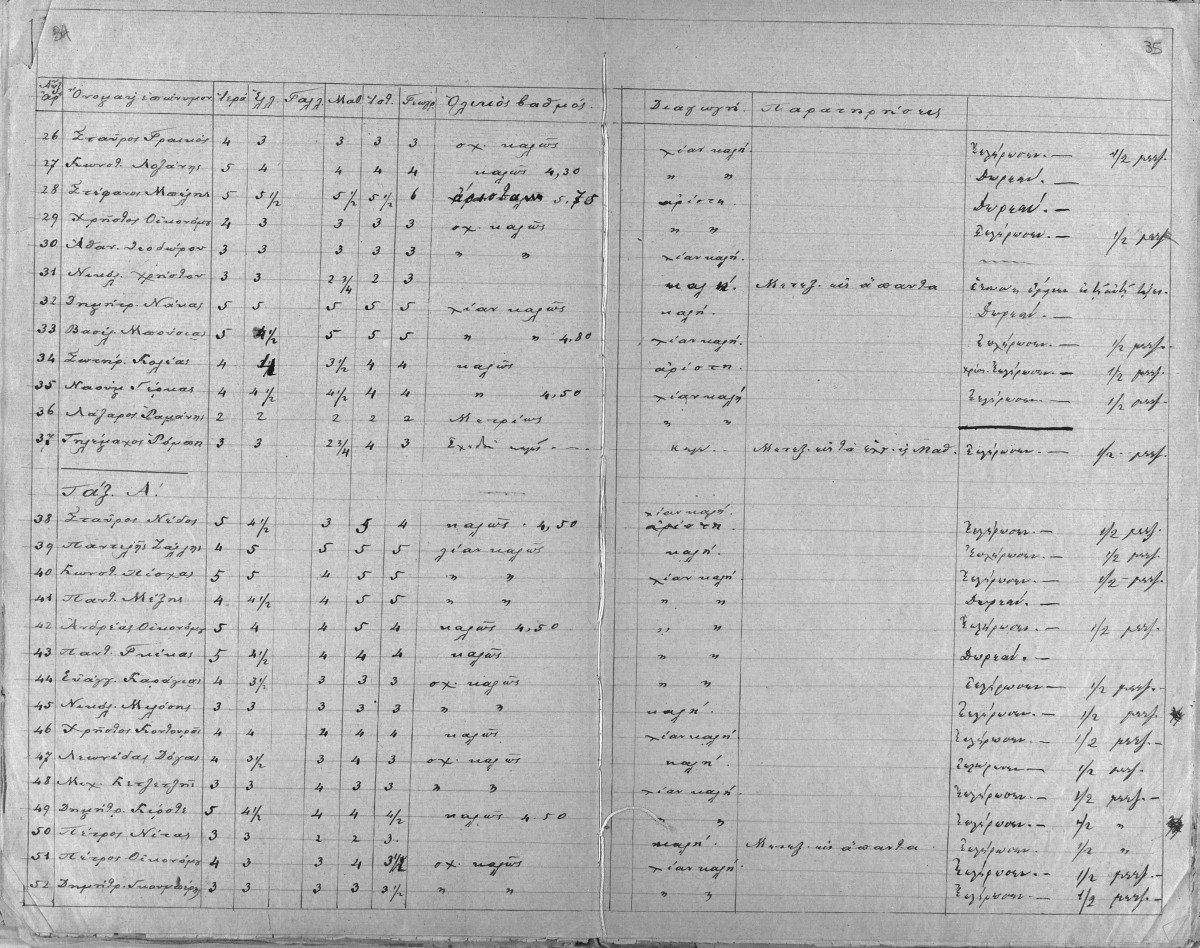 34
35
Αὔξ. Ἀρ. Ὄνομα καὶ ἐπώνυμον Ἱερὰ Ἑλλ. Γαλλ. Μαθ. Ἱστ. Γεωγρ. Ὁλικὸς βαθμός. Διαγωγή. Παρατηρήσεις
26 Σταῦρος 4 3 3 3 3 σχ. καλῶς λίαν καλή. Ἐπλήρωσεν.— 1/2 μετζ.
27 Κωνστ. 5 4 4 4 4 καλῶς 4,30 " " Δωρεάν.—
28 Στέφανος 5 5 1/2 5 1/2 5 1/2 6 ἄριστα 5.75 ἀρίστη. Δωρεάν.—
29 Χρῆστος Οἰκονόμου 4 3 3 3 3 σχ. καλῶς " " Ἐπλήρωσεν.— 1/2 μετζ.
30 Ἀθαν. Θεοδώρου 3 3 3 3 3 " " λίαν καλή.
31 Νικόλ. Χρήστου 3 3 2 3/4 2 3 καλή. Μετεξ. εἰς ἅπαντα
32 Δημήτρ. Νάκας 5 5 5 5 5 λίαν καλῶς καλή. Δωρεάν.—
33 Βασίλ. Μπούσιας 5 4 1/2 5 5 5 " " 4,80 λίαν καλή. Ἐπλήρωσεν.— 1/2 μετζ.
34 Σωτήρ. Κολέας 4 3 1/2 4 4 καλῶς ἀρίστη. Ἐπλήρωσεν.— 1/2 μετζ.
35 Ναοὺμ Γέρκας 4 4 1/2 4 1/2 4 4 " 4,50 λίαν καλή Ἐπλήρωσεν.— 1/2 μετζ.
36 Λάζαρος 2 2 2 2 2 Μετρίως " "
37 Τηλέμαχος 3 3 2 3/4 4 3 Σχεδὸν καλῶς.— Μετεξ. εἰς Μαθ. Ἐπλήρωσεν.— 1/2 μετζ.
Τάξ. Α΄.
λίαν καλή.
38 Σταῦρος Νέδος 5 4 1/2 3 5 4 καλῶς. 4,50 ἀρίστη. Ἐπλήρωσεν.— 1/2 μετζ.
39 Παντελῆς 4 5 5 5 5 λίαν καλῶς καλή. Ἐπλήρωσεν.— 1/2 μετζ.
40 Κωνστ. Πέσχας 5 5 4 5 5 " " λίαν καλή Ἐπλήρωσεν.— 1/2 μετζ.
41 Παντ. Μέξης 4 4 1/2 4 5 5 " " " " Δωρεάν.—
42 Ἀνδρέας Οἰκονόμου 5 4 4 5 4 καλῶς 4,50 " " Ἐπλήρωσεν.— 1/2 μετζ.
43 Παντ. Γκίκας 5 4 1/2 4 4 4 καλῶς " " Δωρεάν.—
44 Εὐάγγ. Καράγιας 4 3 1/2 3 3 3 σχ. καλῶς " " Ἐπλήρωσεν— 1/2 μετζ.—
45 Νικόλ. 3 3 3 3 3 " " καλή. Ἐπλήρωσεν.— 1/2 μετζ.
46 Χρῆστος 4 4 4 4 4 καλῶς λίαν καλή. Ἐπλήρωσεν.— 1/2 μετζ.—
47 Λεωνίδας Δόγας 4 3 1/2 3 4 3 σχ. καλῶς καλή. Ἐπλήρωσεν— 1/2 μετζ.
48 Μιχ. 3 3 4 3 3 " " λίαν καλή. Ἐπλήρωσεν.— 1/2 μετζ.—
49 Δημήτρ. 5 4 1/2 4 4 4 1/2 καλῶς 4.50 " " Ἐπλήρωσεν.— 1/2 "
50 Πέτρος Νέτας 3 3 2 2 3. καλή. Μετεξ. εἰς ἅπαντα Ἐπλήρωσεν. 1/2 "
51 Πέτρος Οἰκονόμου 4 3 3 4 3 1/2 σχ. καλῶς λίαν καλή. Ἐπλήρωσεν.— 1/2 μετζ.—
52 Δημήτρ. 3 3 3 3 3 1/2 " " " " Ἐπλήρωσεν.— 1/2 μετζ.—